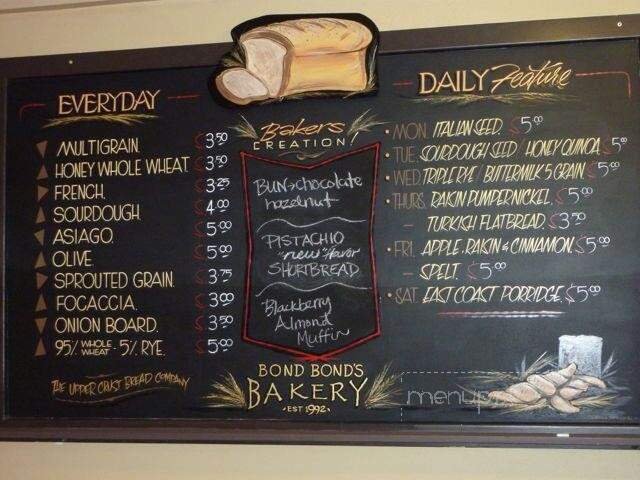 EVERYDAY
MULTIGRAIN. $3.50
HONEY WHOLE WHEAT $3.50
FRENCH. $3.25
SOURDOUGH. $4.00
ASIAGO. $5.00
OLIVE $5.00
SPROUTED GRAIN. $3.75
FOCACCIA. $3.00
ONION BOARD. $3.50
95% WHOLE WHEAT - 5% RYE. $5.00
THE UPPER CRUST BREAD COMPANY
Bakers
CREATION
BUN → chocolate
hazelnut
PISTACHIO
"new" flavor
SHORTBREAD
Blackberry
Almond
Muffin
BOND BOND'S
BAKERY
• EST 1992 •
DAILY Feature
• MON. ITALIAN SEED. $5.00
• TUE. SOURDOUGH SEED / HONEY QUINOA. $5.00
• WED. TRIPLE RYE / BUTTERMILK 5 GRAIN. $5.00
• THURS. RAISIN PUMPERNICKEL. $5.00
– TURKISH FLATBREAD. $3.50
• FRI. APPLE, RAISIN & CINNAMON. $5.00
– SPELT. $5.00
• SAT. EAST COAST PORRIDGE. $5.00